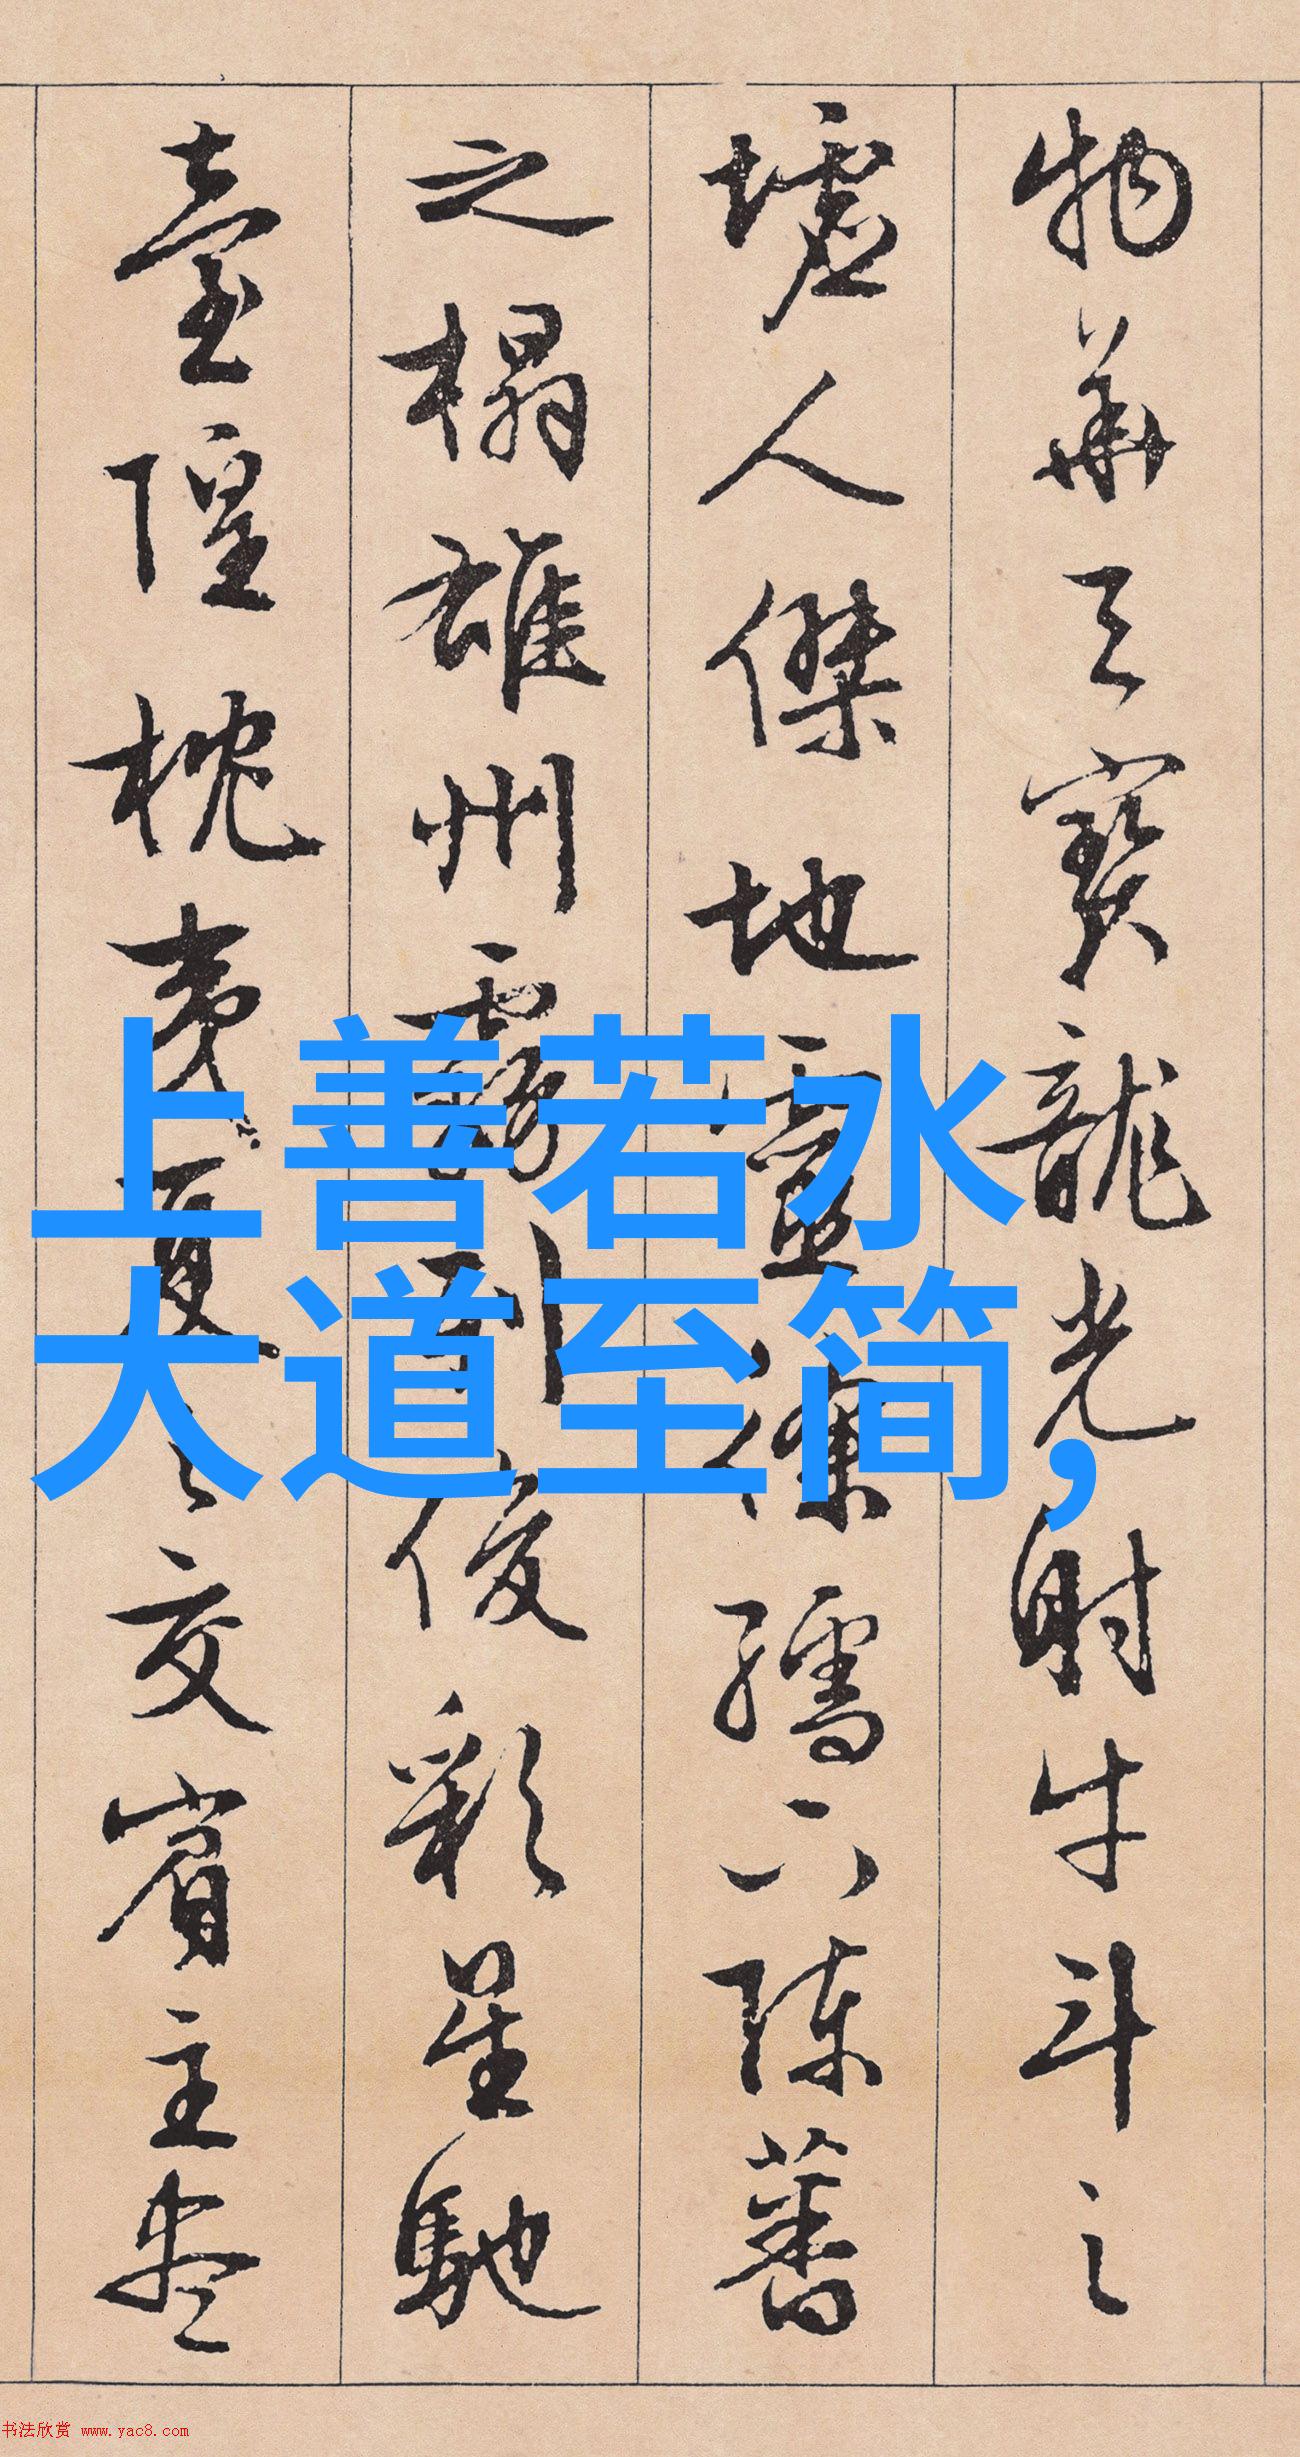 物華天寶龍光射牛斗之
墟人傑地靈徐孺下陳蕃
之榻雄州霧列俊彩星馳
臺隍枕夷夏之交賓主盡
上善若水
大道至简,
书法欣赏 www.yac8.com